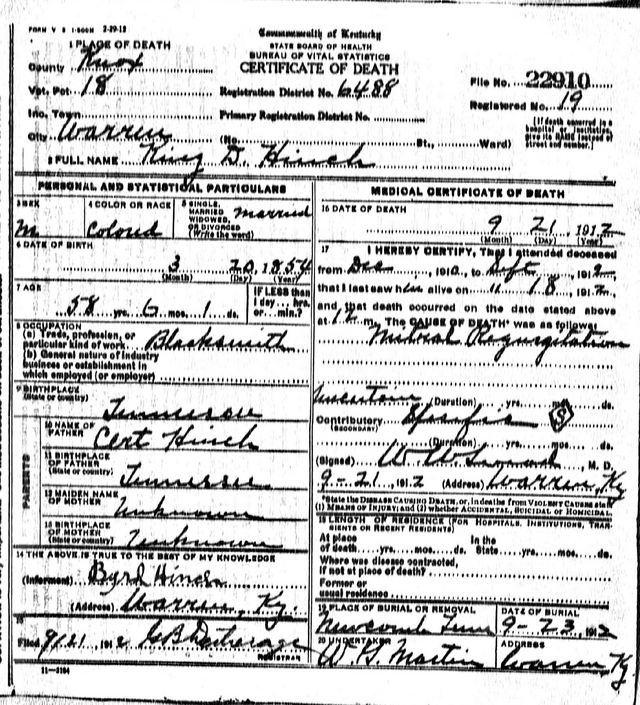 FORM V S 1-500M 2-29-12
Commonwealth of Kentucky
STATE BOARD OF HEALTH
BUREAU OF VITAL STATISTICS
CERTIFICATE OF DEATH
1 PLACE OF DEATH
County Knox
Vot. Pct 18
Registration District No. 6488
File No. 22910
Registered No. 19
Inc. Town
Primary Registration District No.
City Warren (No. St., Ward)
[If death occurred in a hospital or institution, give its NAME instead of street and number.]
2 FULL NAME King D. Hinch
PERSONAL AND STATISTICAL PARTICULARS
3 SEX M
4 COLOR OR RACE Colored
5 SINGLE, MARRIED, WIDOWED, OR DIVORCED (Write the word) married
6 DATE OF BIRTH
3 20, 1854
(Month) (Day) (Year)
7 AGE
58 yrs. 6 mos. 1 ds.
IF LESS than 1 day... hrs. or ... min.?
8 OCCUPATION
(a) Trade, profession, or particular kind of work Blacksmith
(b) General nature of industry
business or establishment in
which employed (or employer)
9 BIRTHPLACE
(State or country) Tennessee
PARENTS
10 NAME OF FATHER Cert Hinch
11 BIRTHPLACE OF FATHER
(State or country) Tennessee
12 MAIDEN NAME OF MOTHER Unknown
13 BIRTHPLACE OF MOTHER
(State or country) Unknown
14 THE ABOVE IS TRUE TO THE BEST OF MY KNOWLEDGE
(Informant) Byrd Hinch
(Address) Warren, Ky.
15
Filed 9/21 1912
REGISTRAR
11-3184
MEDICAL CERTIFICATE OF DEATH
16 DATE OF DEATH
9 21, 1912
(Month) (Day) (Year)
17 I HEREBY CERTIFY, That I attended deceased
from Dec, 1910, to Sept, 1912
that I last saw him alive on " 18, 1912,
and that death occurred on the date stated above
at 12 m. The CAUSE OF DEATH* was as follows:
Mitral Regurgitation
Uncertain (Duration) yrs. mos. ds.
Contributory
(SECONDARY)
(S)
(Duration) yrs. mos. ds.
(Signed) W. W. M. D.
9-21, 1912 (Address) Warren, Ky
*State the DISEASE CAUSING DEATH, or, in deaths from VIOLENT CAUSES state
(1) MEANS OF INJURY; and (2) whether ACCIDENTAL, SUICIDAL or HOMICIDAL.
18 LENGTH OF RESIDENCE (FOR HOSPITALS, INSTITUTIONS, TRANSIENTS OR RECENT RESIDENTS)
At place of death yrs. mos. ds. In the State yrs. mos. ds.
Where was disease contracted,
if not at place of death?
Former or
usual residence
19 PLACE OF BURIAL OR REMOVAL
Newcomb Tenn
DATE OF BURIAL
9-23, 1912
20 UNDERTAKER
Martin
ADDRESS
Warren, Ky